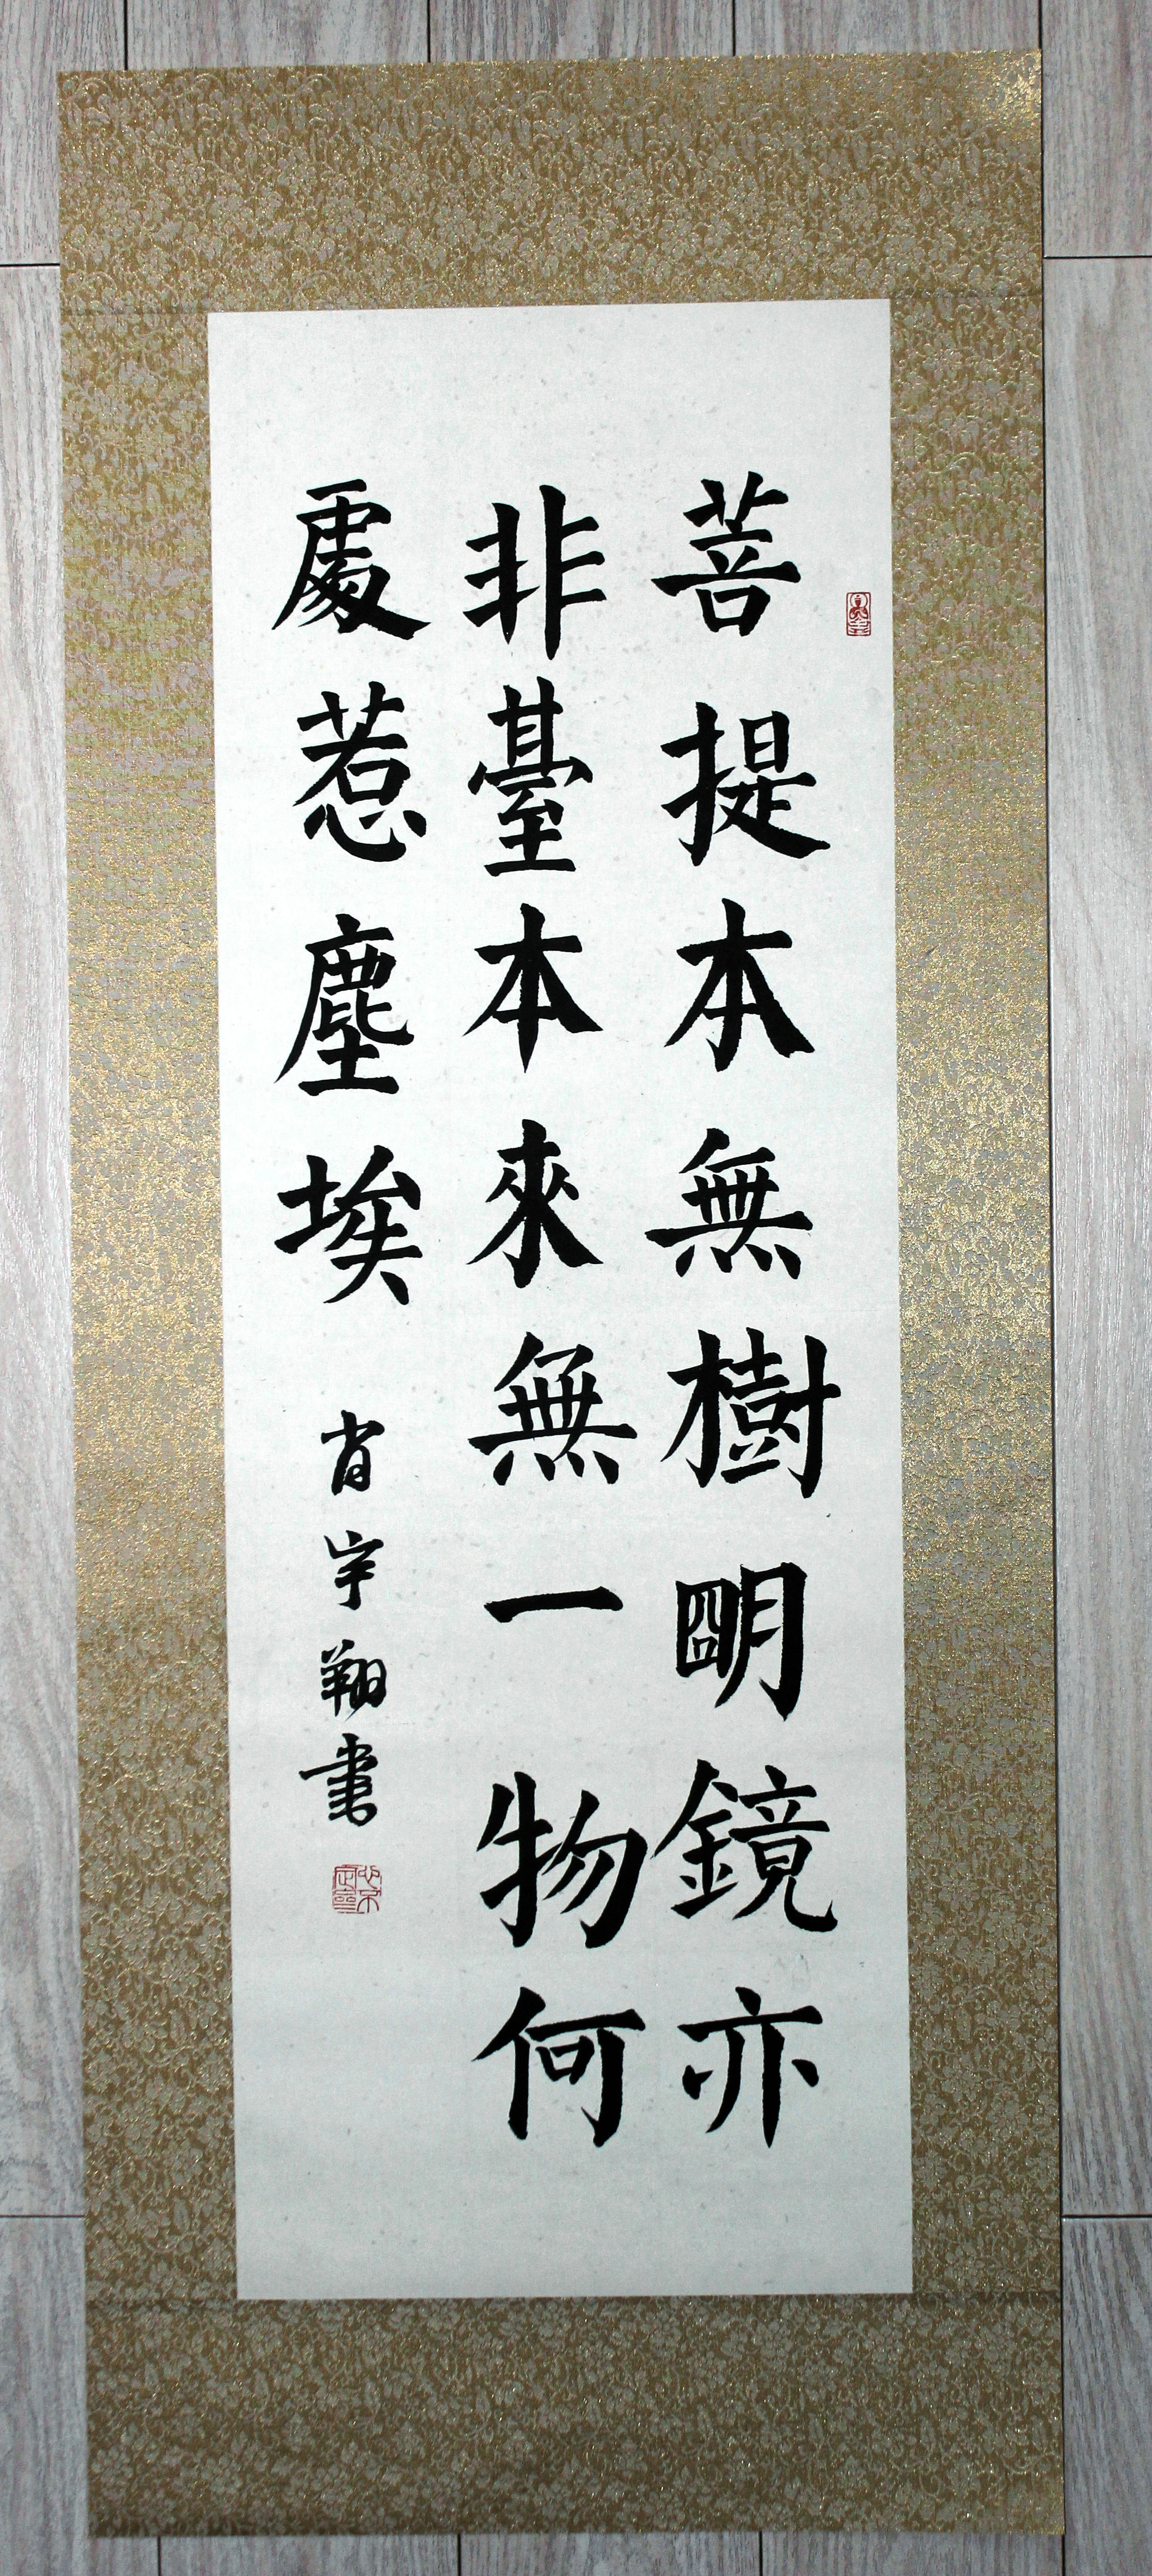 菩提本無樹明鏡亦
非臺本來無一物何
處惹塵埃
肖宇翔書